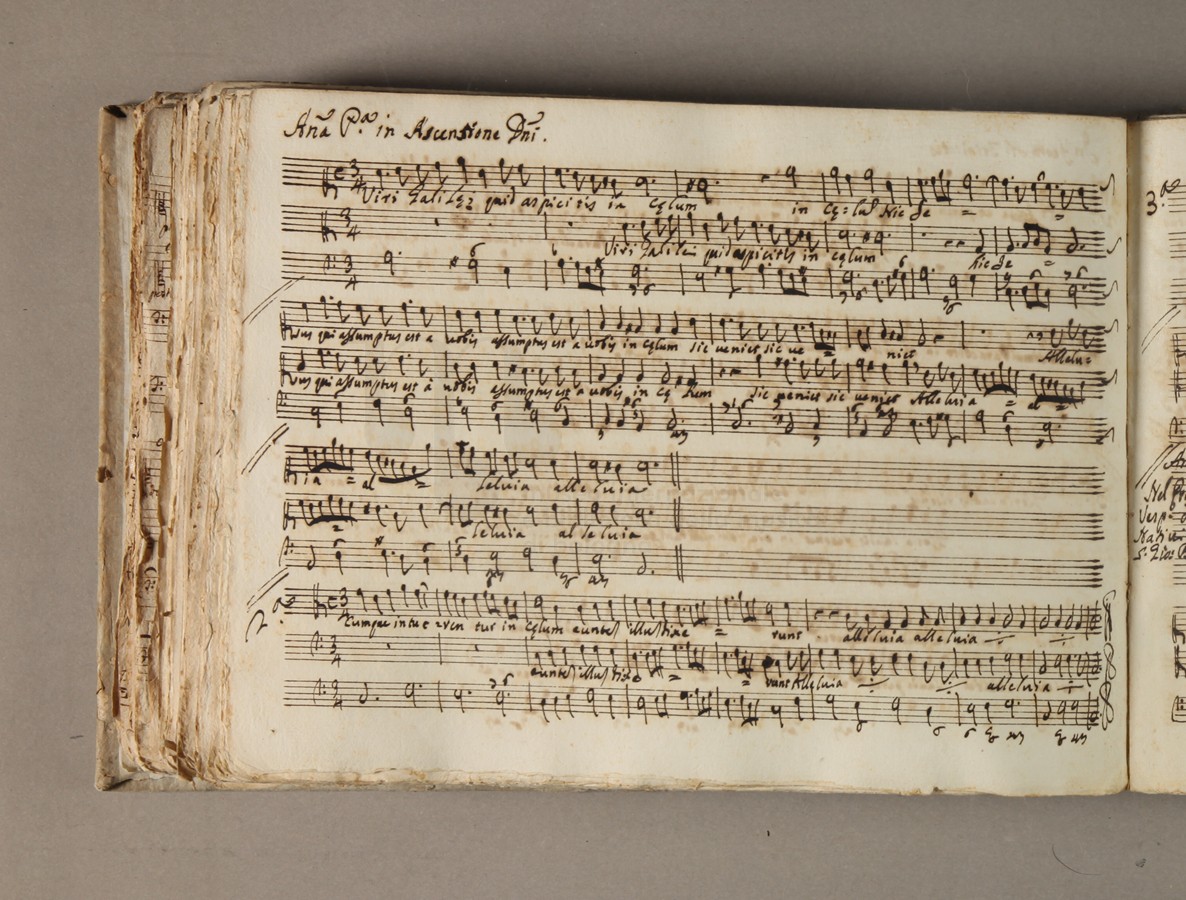 Añã P.ª in Ascensione Dñi.
Viri Galilęi quid aspicitis in cęlum in cę=lũ Hic de =
Viri Galilei quid aspicitis in cęlum hic de =
sus qui assumptus est a uobis assumptus est a uobis in cęlum sic ueniet sic ue = niet Allelu=
sus qui assumptus est à uobis assumptus est a uobis in cę lum sic ueniet sic ueniet Alleluia = al =
ia = al = leluia alleluia
= leluia al le luia
2.ª
Cumque intue ren tur in cęlum euntẽ illustixe = runt alleluia alleluia
euntẽ = = runt Alleluia alleluia
3.ª
Nel
Vesp.